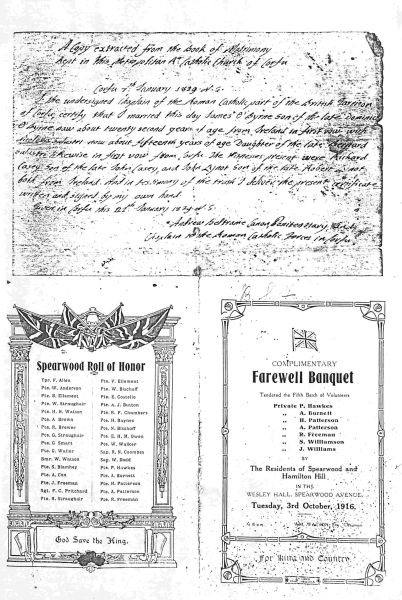 A Copy extracted from the Book of Matrimony
Kept in this Metropolitan Rn. Catholic Church of Corfu
Corfu 7th January 1829 N.S.
I the undersigned Chaplain of the Roman Catholic part of the British Garrison
of Corfu, certify that I married this day James O'Byrne Son of the late Dominic
O'Byrne now about twenty second years of age from Ireland in first vow with
now about fifteenth years of age Daughter of the late
likewise in first vow from Corfu. The Witnesses present were Richard
Carey Son of the late John Carey, and John Son of the late Robert
both from Ireland. And in testimony of the truth I deliver the present certificate
written and signed by my own hand.
Given in Corfu this January 1829 N.S.
Andrew Canon
Chaplain to the Roman Catholic Forces in Corfu
Spearwood Roll of Honor
Tpr. F. Allen
Pte. W. Anderson
Pte. B. Ellement
Pte. W. Straughair
Pte. H. S. Watson
Pte. A. Brown
Pte. E. Brewer
Pte. G. Straughair
Pte. G. Smart
Pte. G. Waller
Bmr. W. Watson
Pte. S. Blamhey
Pte. A. Cox
Pte. J. Freeman
Sgt. F. C. Pritchard
Pte. R. Straughair
Pte. V. Ellement
Pte. W. Bischoff
Pte. E. Costello
Pte. A. J. Button
Pte. R. F. Chambers
Pte. H. Baynes
Pte. N. Bischoff
Pte. E. H. M. Owen
Pte. W. Walker
Sap. R. N. Coombes
Sap. W. Dodd
Pte. P. Hawkes
Pte. A. Burnett
Pte. H. Patterson
Pte. A. Patterson
Pte. R. Freeman
God Save the King.
COMPLIMENTARY
Farewell Banquet
Tendered the Fifth Batch of Volunteers
Private P. Hawkes
„ A. Burnett
„ H. Patterson
„ A. Patterson
„ R. Freeman
„ S. Williamson
„ J. Williams
BY
The Residents of Spearwood and
Hamilton Hill
IN THE
WESLEY HALL, SPEARWOOD AVENUE,
Tuesday, 3rd October, 1916.
For King and Country